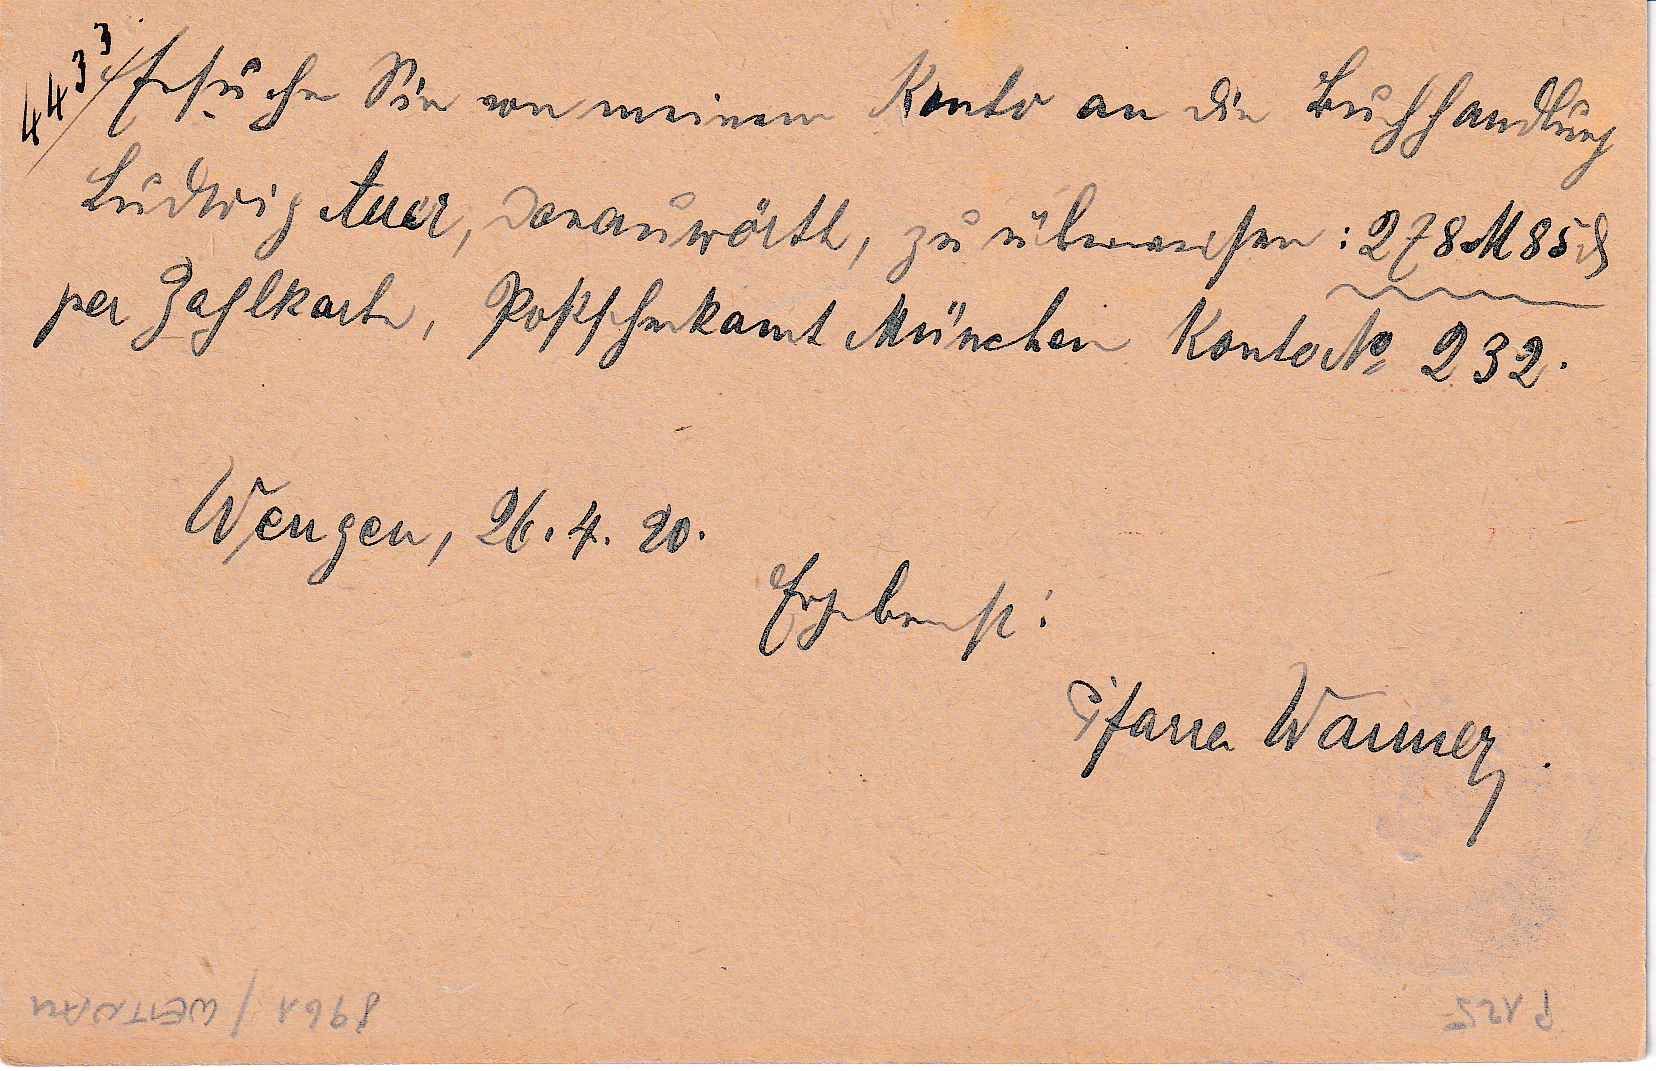 443³/
Ersuche Sie von meinem Konto an die Buchhandlung
Ludwig Auer, Donauwörth, zu überweisen: 278 M 85 ₰
per Zahlkarte, Postscheckamt München Konto № 232.
Wengen, 26. 4. 20.
Ergebenst:
Pfarrer Wanner.
8961 / WEITNAU
P 125